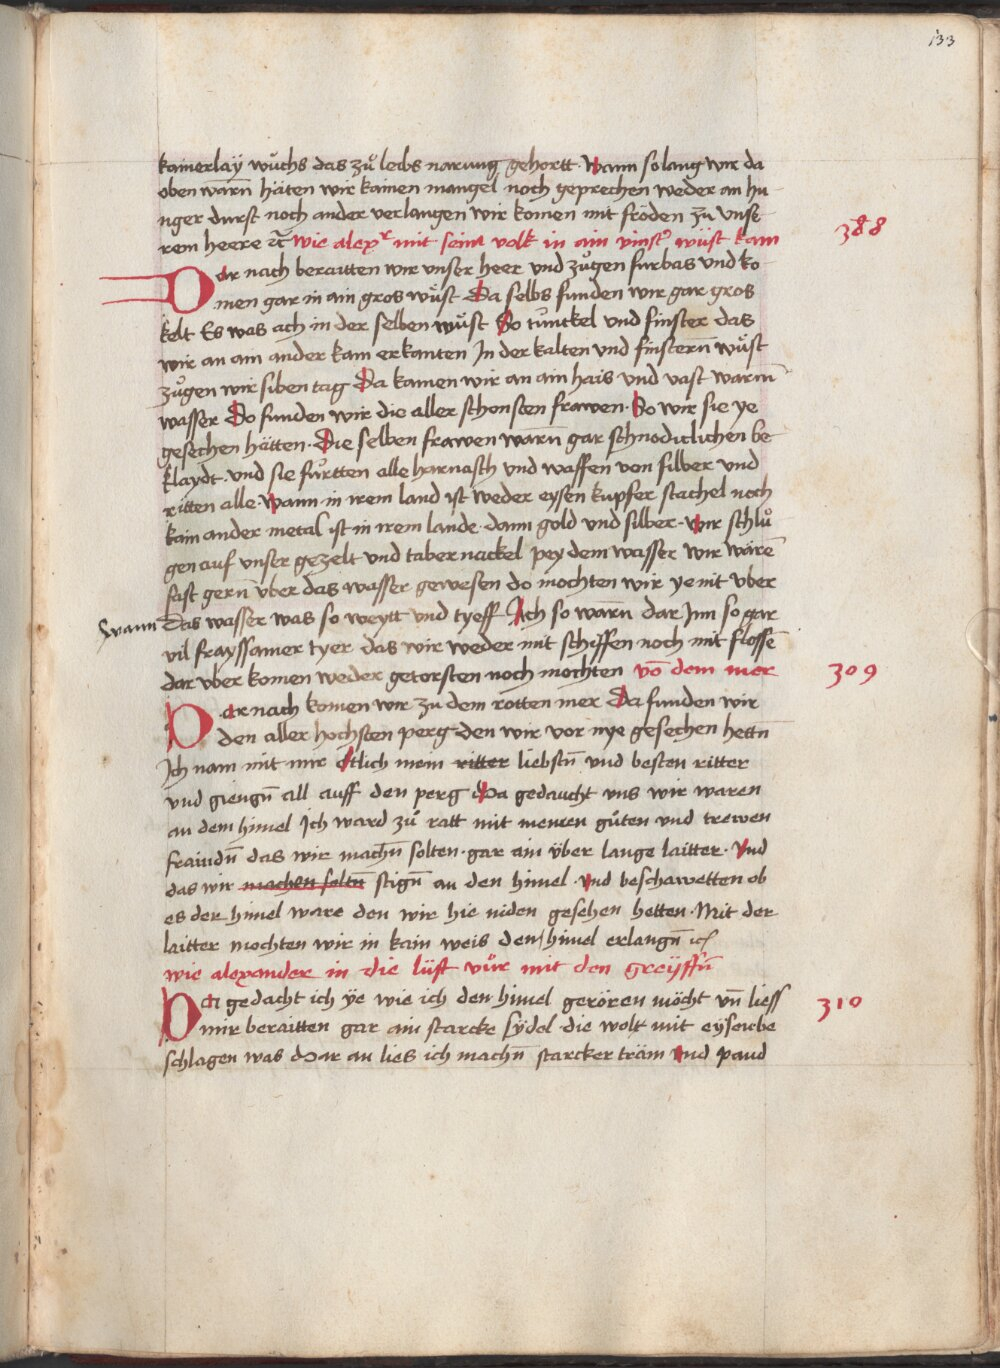 133
kainerlaÿ wůchs das zů leibs narung gehortt Wann solang wir da
oben warn̄ häten wir kainen mangel noch geprechen weder an hu-
nger durst noch ander verlangen wir komen mit froden zu vnse
rem heere ꝛc̄ wie alexr mit seim volk in ain vinstr wüst kam
388
Dar nach beraitten wir vnser heer vnd zůgen furbas vnd ko-
men gar in ain gros wůst Da selbs funden wir gar gros
kelt Es was ach in der selben wůst So tunckel vnd finster das
wir an am ander kam erkanten In der kalten vnd finstern̄ wůst
zůgen wir siben tag Da kamen wir an ain hais vnd vast warm̄
wasser Do funden wir die aller schonsten frawen. So wir sie ye
gesechen hätten. Die selben frawen warn̄ gar schnodiclichen be
klaydt. vnd sie fůrtten alle harnasch vnd waffen von silber vnd
ritten alle. Wann in irem land ist weder eysen kupfer stachel noch
kain ander metal ist in irem lande. dann gold vnd silber. wir schlů
gen auf vnser gezelt vnd tabernackel pey dem wasser wir warē
fast gern̄ v̈ber das wasser gewesen do mochten wir ye nit vber
Swann
Das wasser was so weytt vnd tyeff Ach so warn̄ dar Inn so gar
vil frayssamer tyer das wir weder mit schiffen noch mit flossē
dar vber komen weder getorsten noch mochten vō dem mer
309
Dar nach komen wir zu dem rotten mer Da funden wir
den aller hochsten perg den wir vor nye gesechen hettn̄
Ich nam mit mir etlich mein ritter liebstn̄ vnd besten ritter
vnd giengn̄ all auff den perg Da gedaucht vns wir waren
an dem himel Ich ward zů ratt mit meinen gůten vnd trewen
fraindn̄ das wir machn̄ solten. gar ain v̈ber lange laitter. Vnd
das wir machen soltn̄ stign̄ an den himel. vnd beschawetten ob
es der himel ware den wir hie niden gesehen hetten. Mit der
laitter mochten wir in kain weis den himel erlangn̄ ꝛc
wie alexander in die lüft vůr mit den greÿffn̄
Da gedacht ich ÿe wie ich den himel gerören möcht vn̄ liess
310
mir beraitten gar ain starcke sÿdel die wolt mit eysen be
schlagen was Dar an lies ich machn̄ starcker träm vnd pand